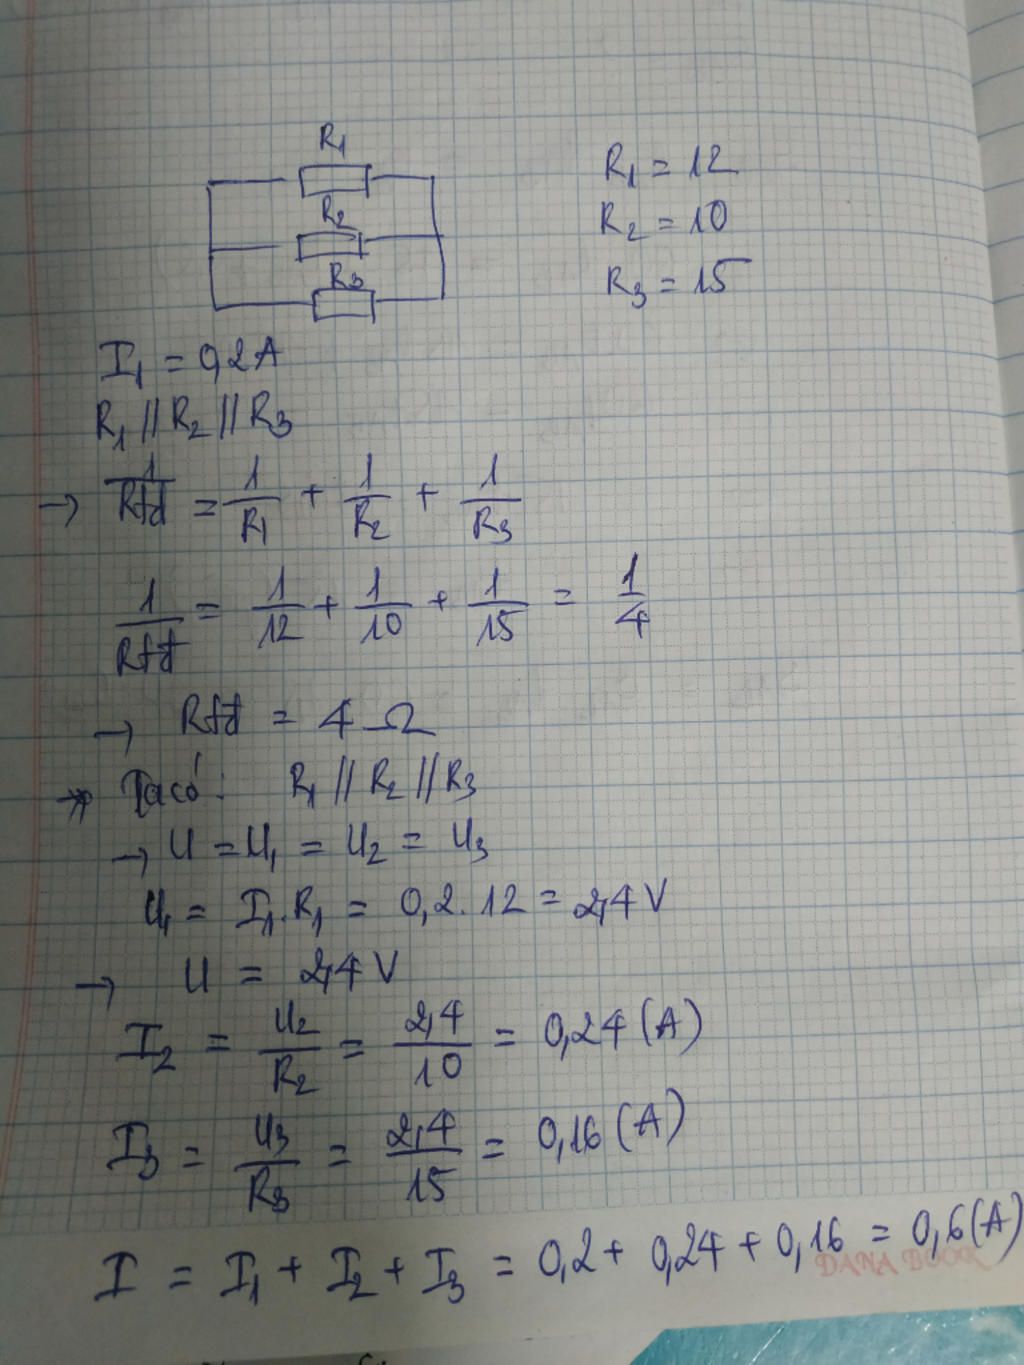 R1
R2
R3
R1 = 12
R2 = 10
R3 = 15
I1 = 0,2A
R1 // R2 // R3
→ 1/Rtđ = 1/R1 + 1/R2 + 1/R3
1/Rtđ = 1/12 + 1/10 + 1/15 = 1/4
→ Rtđ = 4 Ω
→ Ta có: R1 // R2 // R3
→ U = U1 = U2 = U3
U1 = I1.R1 = 0,2.12 = 2,4V
→ U = 2,4V
I2 = U2/R2 = 2,4/10 = 0,24 (A)
I3 = U3/R3 = 2,4/15 = 0,16 (A)
I = I1 + I2 + I3 = 0,2 + 0,24 + 0,16 = 0,6 (A)
DANA BOOK